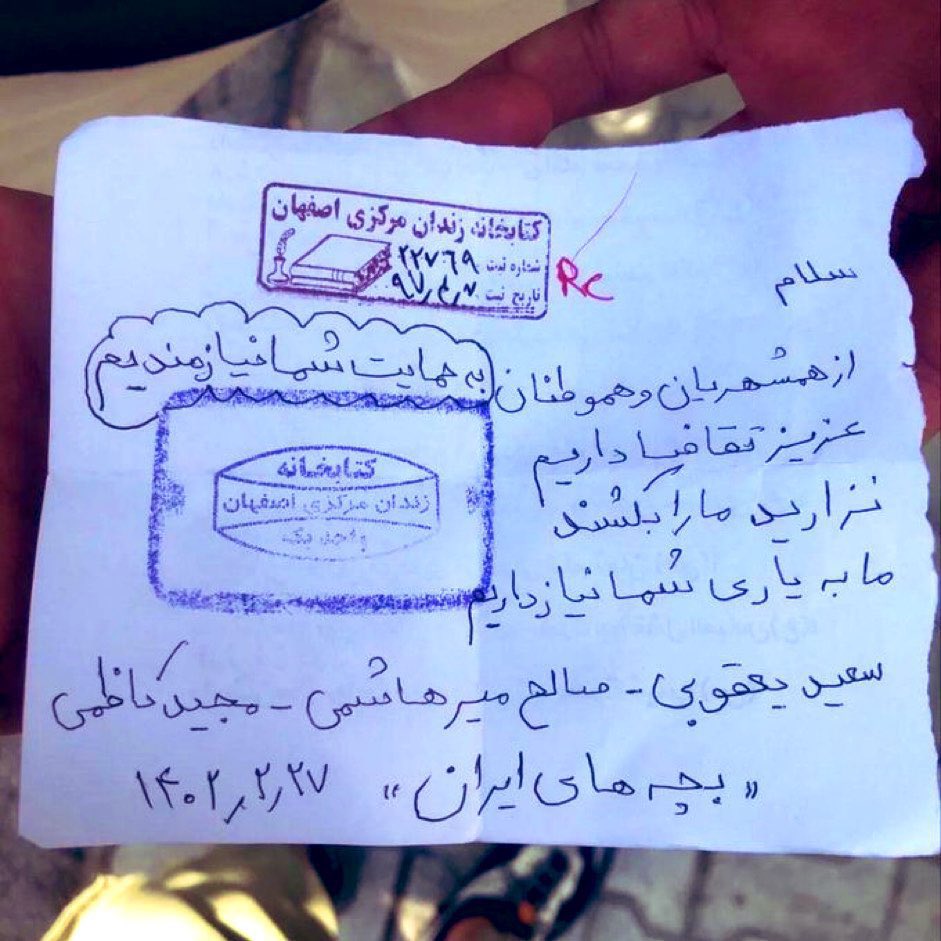 کتابخانه زندان مرکزی اصفهان
شماره ثبت ۲۲۷۶۹
تاریخ ثبت ۹۷٫۴٫۷
Rc
سلام
از همشهریان و هموطنان
به حمایت شما نیازمندیم
عزیز تقاضا داریم
نزارید ما را بکشند
ما به یاری شما نیاز داریم
کتابخانه
زندان مرکزی اصفهان
واحد یک
سعید یعقوبی - صالح میرهاشمی - مجید کاظمی
«بچه های ایران» ۱۴۰۲٫۲٫۲۷